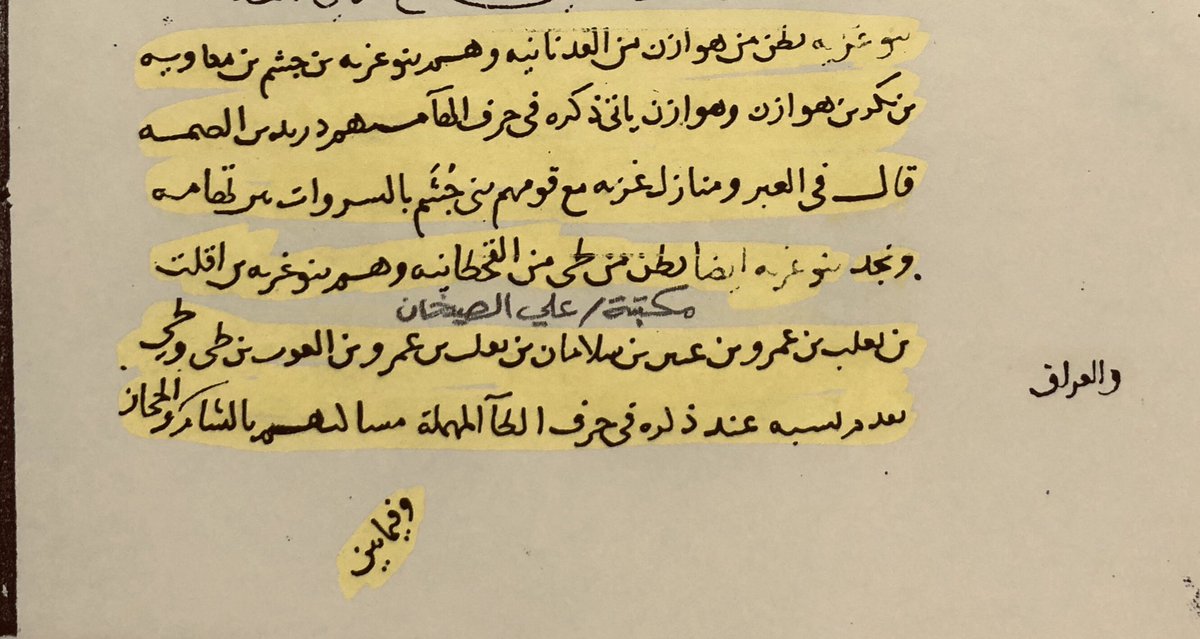 بنو غزيه بطن من هوازن من العدنانيه وهم بنو غزيه بن جشم بن معاويه
بن بكر بن هوازن وهوازن ياتى ذكره فى حرف الهآ منهم دريد بن الصمه
قال فى العبر ومنازل غزيه مع قومهم بنى جُشَم بالسروات بين تهامه
ونجد بنو غزيه ايضا بطن من طى من القحطانيه وهم بنو غزيه بن افلت
مكتبة / علي الصيخان
بن ثعلب بن عمرو بن عنين بن سلامان بن ثعل بن عمرو بن الغوث بن طى وطى
والعراق
تقدم نسبه عند ذكره فى حرف الطآ المهملة مساكنهم بالشام والحجاز
وفيما بين